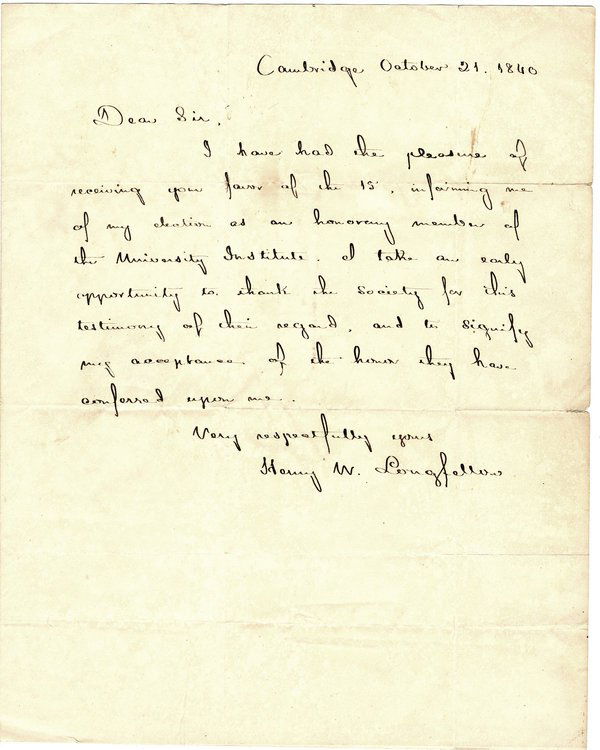 Cambridge October 21. 1840
Dear Sir,
I have had the pleasure of
receiving your favor of the 15, informing me
of my election as an honorary member of
the University Institute. I take an early
opportunity to thank the Society for this
testimony of their regard, and to signify
my acceptance of the honor they have
conferred upon me.
Very respectfully yours
Henry W. Longfellow